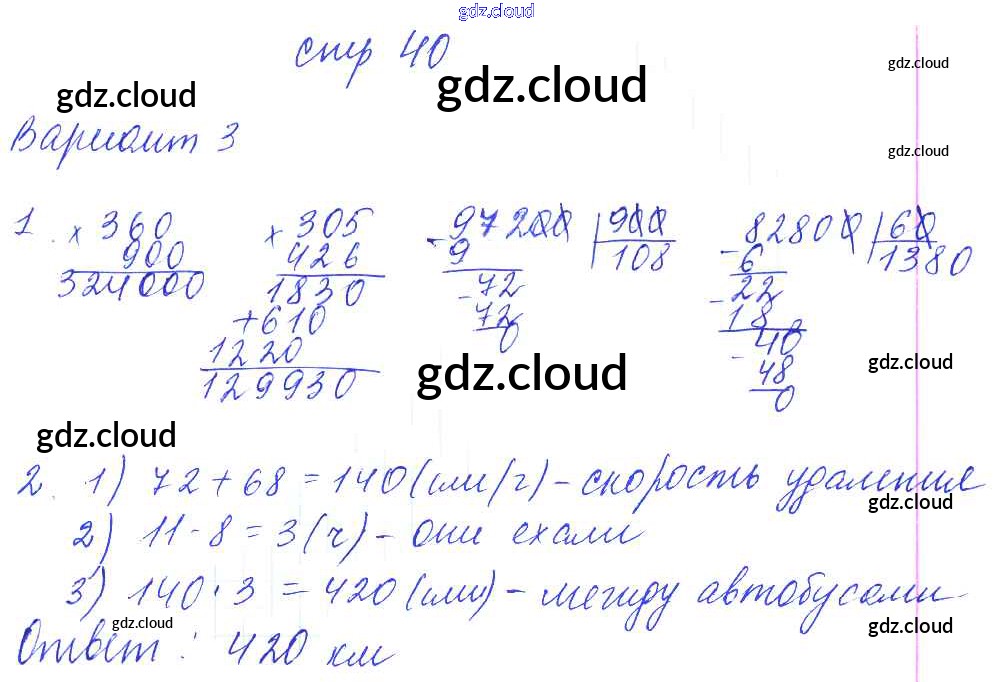 gdz.cloud
стр 40
gdz.cloud
gdz.cloud
gdz.cloud
Вариант 3
gdz.cloud
1. × 360
900
324000
× 305
426
1830
+610
1220
129930
- 97200 | 900
9 108
- 72
72
0
82800 | 60
- 6 1380
- 22
18
- 40
48
0
gdz.cloud
gdz.cloud
gdz.cloud
2. 1) 72 + 68 = 140 (км/г) - скорость удаления
gdz.cloud
2) 11 - 8 = 3 (ч) - они ехали
3) 140 · 3 = 420 (км) - между автобусами
gdz.cloud
gdz.cloud
Ответ: 420 км